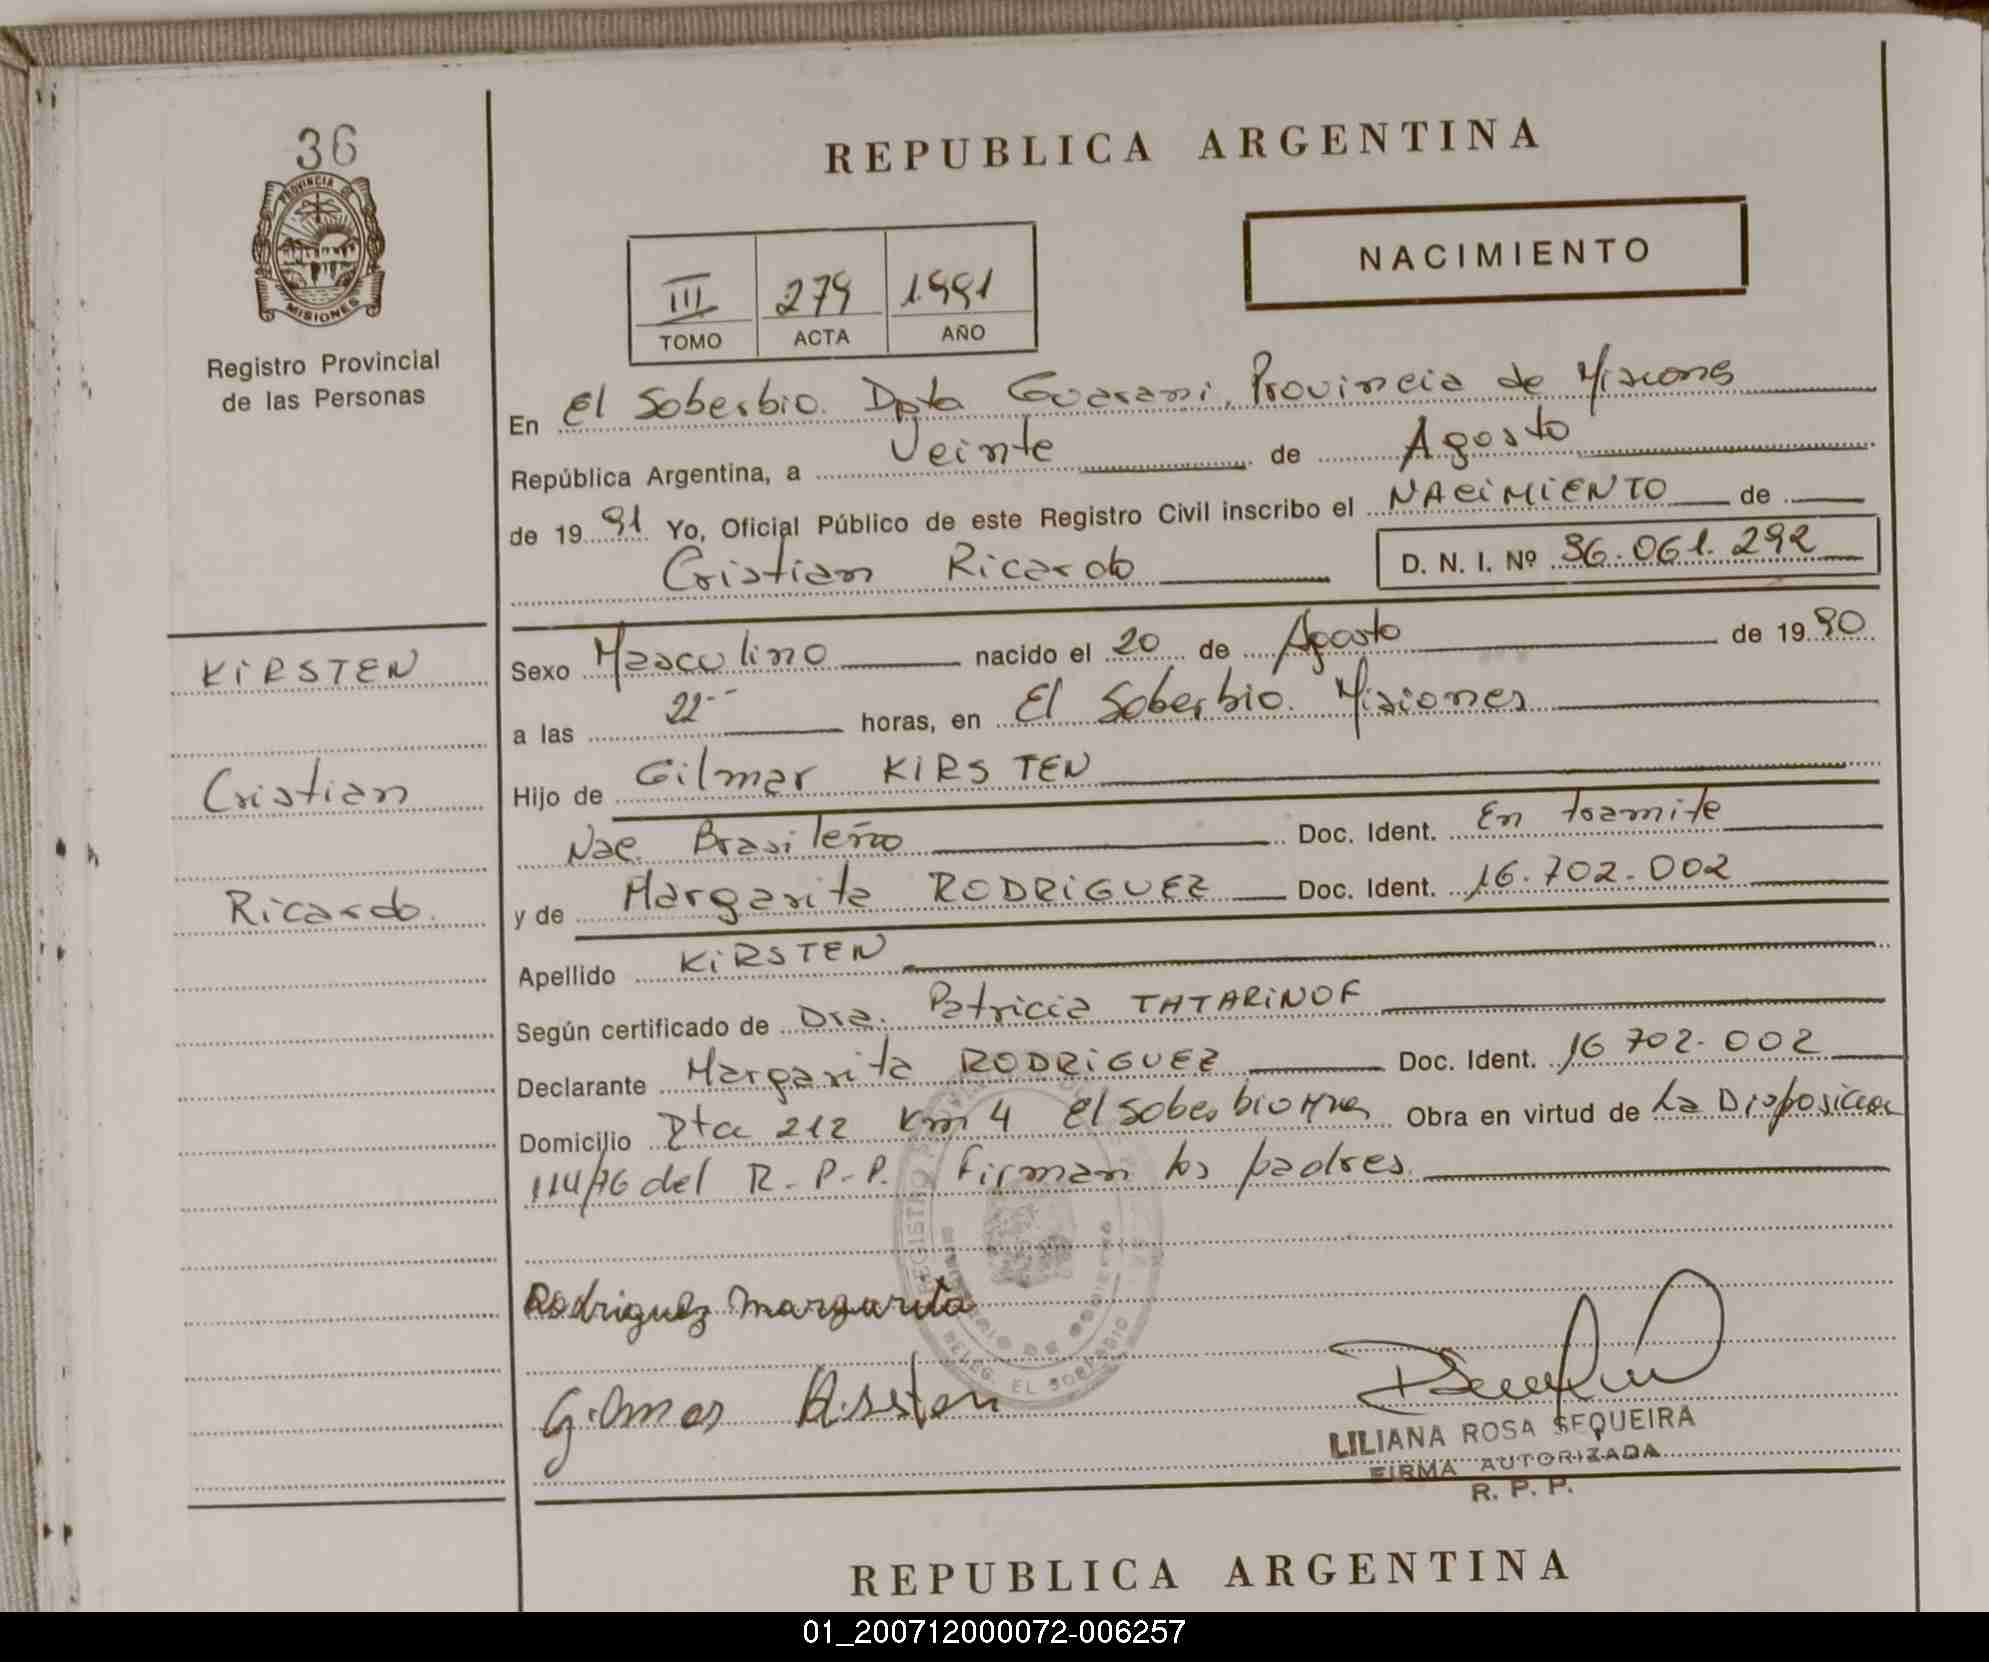 36
PROVINCIA DE
MISIONES
Registro Provincial
de las Personas
REPUBLICA ARGENTINA
III 279 1.991
TOMO ACTA AÑO
NACIMIENTO
En El Soberbio. Dpto Guarani, Provincia de Misiones
República Argentina, a Veinte de Agosto
de 19 91 Yo, Oficial Público de este Registro Civil inscribo el NACIMIENTO de
Cristian Ricardo D. N. I. Nº 36.061.292
Sexo Masculino nacido el 20 de Agosto de 19 90
a las 22-- horas, en El Soberbio. Misiones
Hijo de Gilmar KIRSTEN
Nac. Brasileño Doc. Ident. En tramite
y de Margarita RODRIGUEZ Doc. Ident. 16.702.002
Apellido KIRSTEN
Según certificado de Dra. Patricia TATARINOF
Declarante Margarita RODRIGUEZ Doc. Ident. 16 702.002
Domicilio Rta 212 Km 4 El Soberbio Mnes Obra en virtud de La Disposicion
114/76 del R.P.P. Firman los padres.
KIRSTEN
Cristian
Ricardo.
Rodriguez Margarita
Gilmar Kirsten
DELEG. EL SOBERBIO
LILIANA ROSA SEQUEIRA
FIRMA AUTORIZADA
R. P. P.
REPUBLICA ARGENTINA
01_200712000072-006257